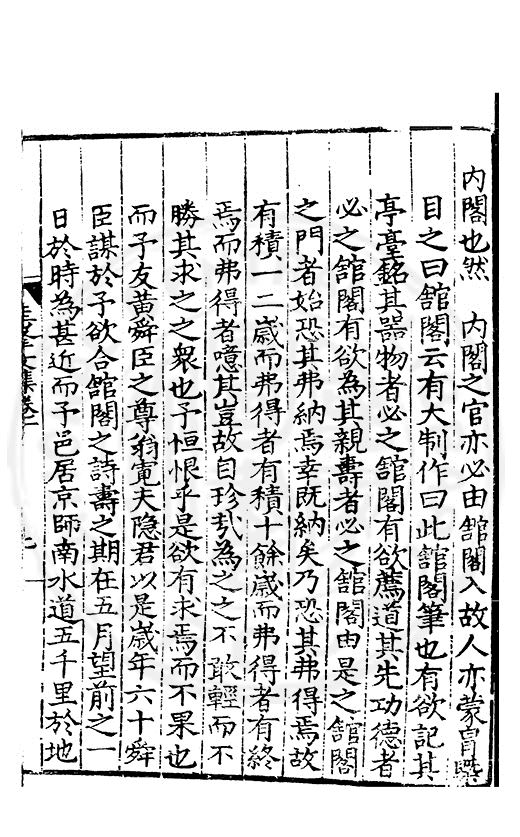 內閣也然　內閣之官亦必由舘閣入故人亦蒙冒槩
目之曰舘閣云有大制作曰此舘閣筆也有欲記其
亭臺銘其器物者必之舘閣有欲薦道其先功德者
必之舘閣有欲為其親壽者必之舘閣由是之舘閣
之門者始恐其弗納焉幸既納矣乃恐其弗得焉故
有積一二歲而弗得者有積十餘歲而弗得者有終
焉而弗得者噫其豈故自珍㢤為之之不敢輕而不
勝其求之之衆也予恒恨乎是欲有求焉而不果也
而予友黃舜臣之尊翁寅夫隐君以是歲年六十舜
臣謀於予欲合舘閣之詩壽之期在五月望前之一
日於時為甚近而予邑居京師南水道五千里於地
文集卷